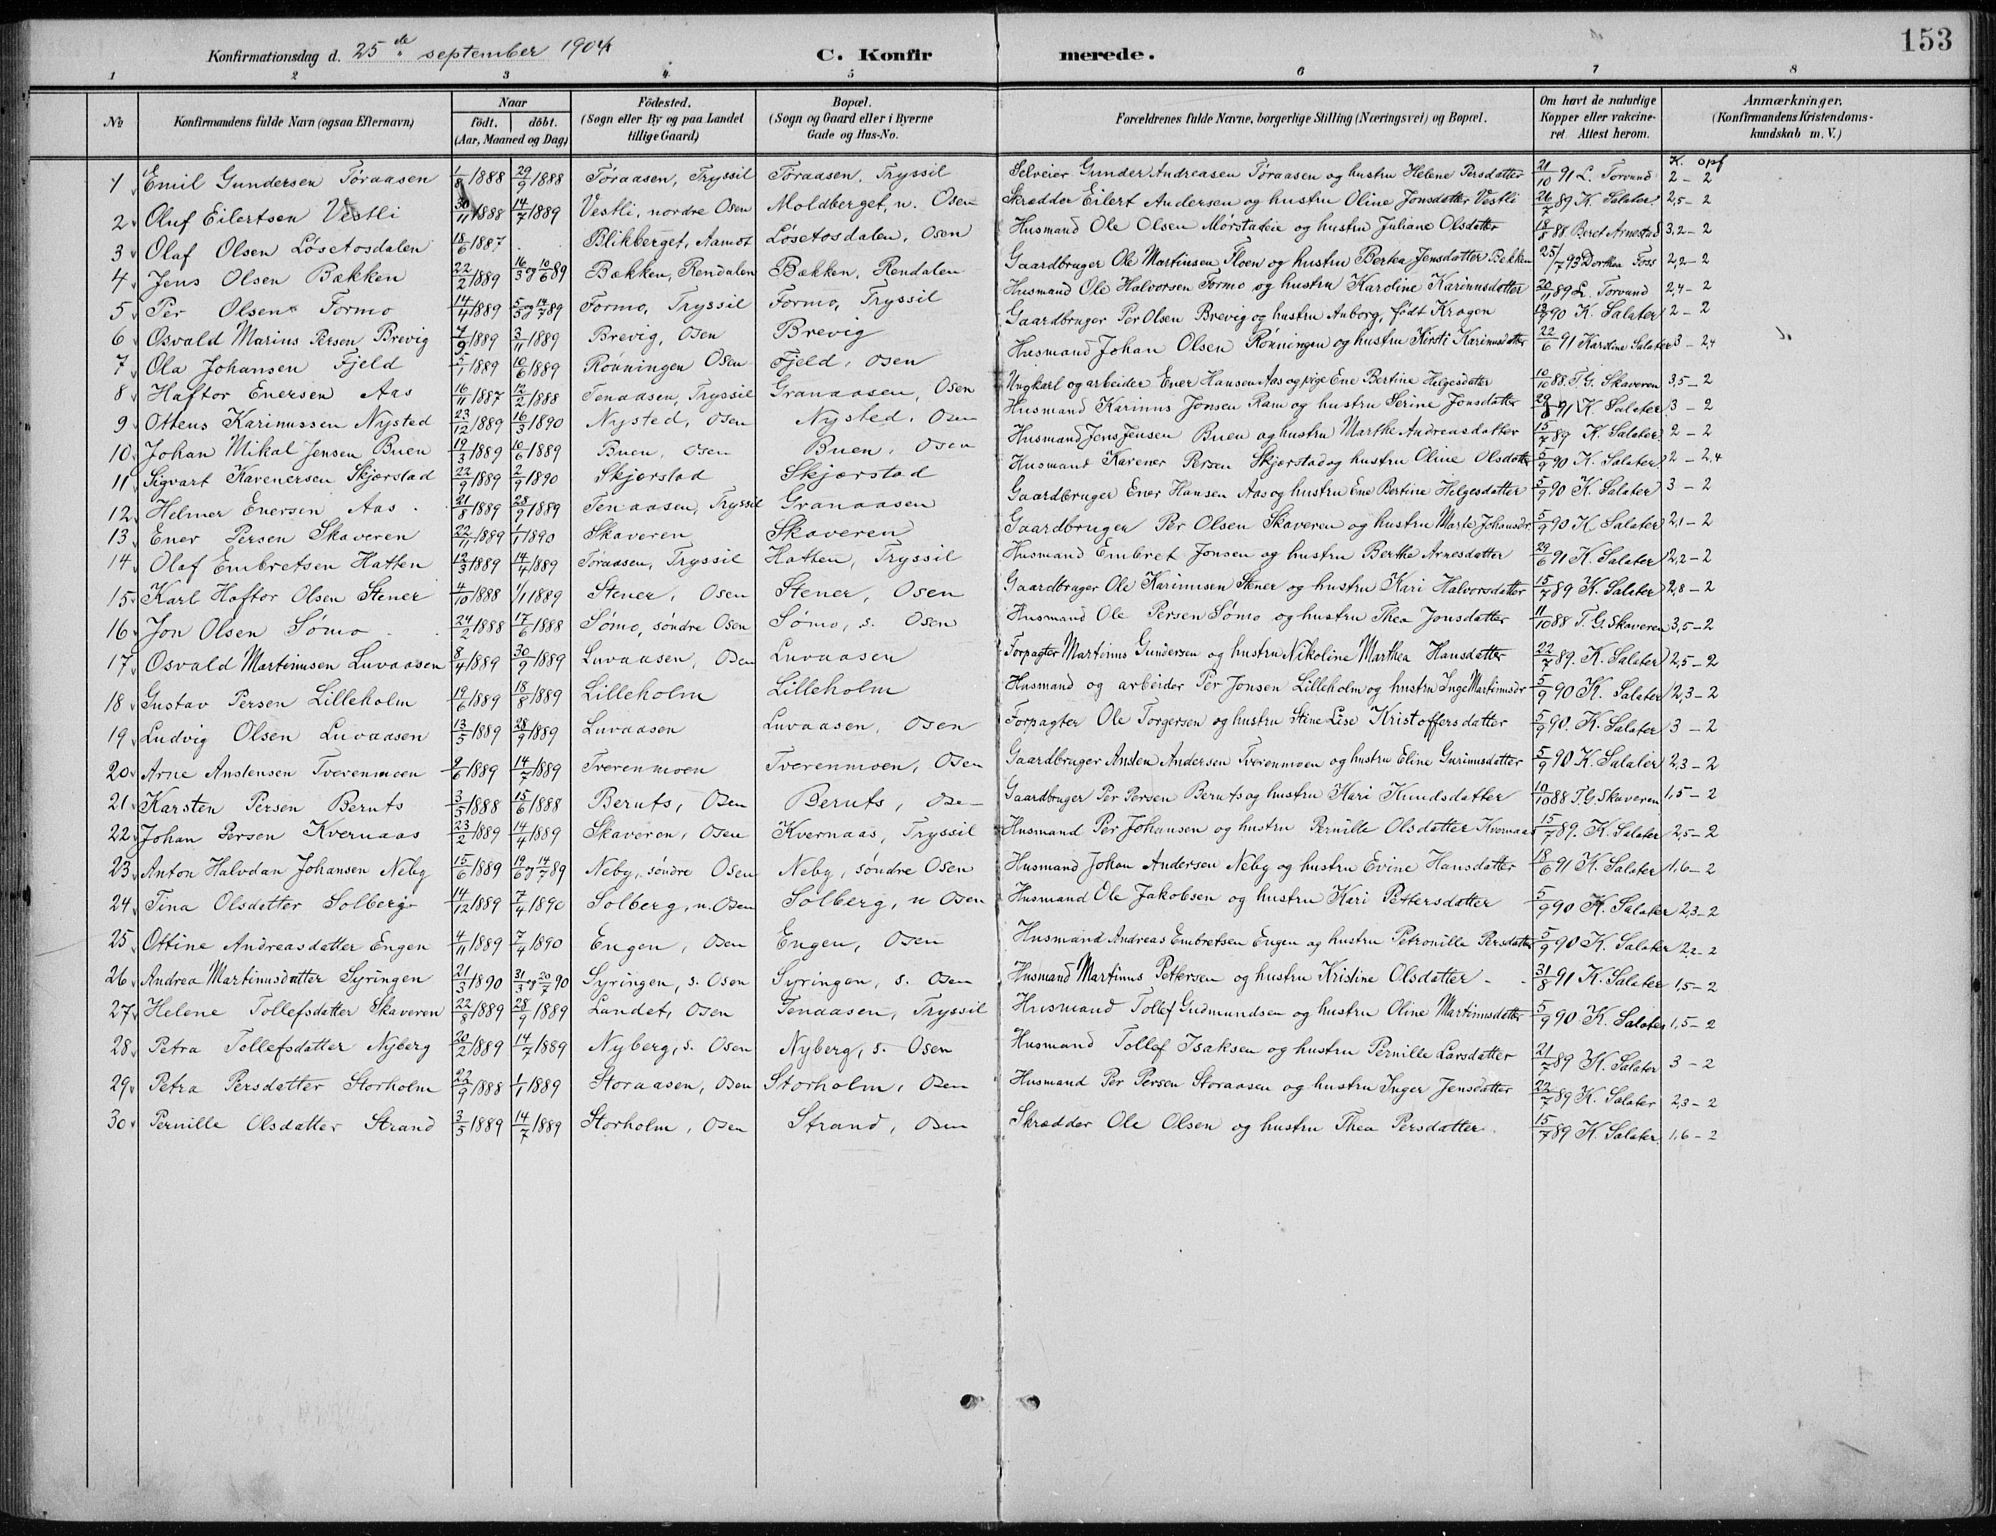 153
Konfirmationsdag d. 25de september 1904
C. Konfirmerede.
1 2 3 4 5 6 7 8
№ Konfirmandens fulde Navn (ogsaa Efternavn) Naar födt. döbt. (Aar, Maaned og Dag) Födested. (Sogn eller By og paa Landet tillige Gaard) Bopæl. (Sogn og Gaard eller i Byerne Gade og Hus-No. Forældrenes fulde Navne, borgerlige Stilling (Næringsvei) og Bopæl. Om havt de naturlige Kopper eller vakcineret. Attest herom. Anmærkninger. (Konfirmandens Kristendomskundskab m. V.)
K. opf
1 Emil Gundersen Töraasen 1/8 1888 29/9 1888 Töraasen, Tryssil Töraasen, Tryssil Selveier Gunder Andreasen Töraasen og hustru Helene Persdatter 21/10 91 L. Torvund 2 – 2
2 Oluf Eilertsen Vestli 30/11 1888 14/7 1889 Vestli, nordre Osen Moldberget, n. Osen Skrædder Eilert Andersen og hustru Oline Jonsdatter Vestli 26/7 89 K. Salater 2,5 – 2
3 Olaf Olsen Løsetosdalen 18/6 1887 Blikberget, Aamot Løsetosdalen, Osen Husmand Ole Olsen Mørstadeie og hustru Juliane Olsdatter 18/8 88 Beret Arnestad 3,2 – 2
4 Jens Olsen Bækken 22/2 1889 16/3 og 10/6 89 Bækken, Rendalen Bækken, Rendalen Gaardbruger Ole Martinsen Floen og hustru Bertea Jensdatter Bekken 25/7 93 Dorthea Foss 2,2 – 2
5 Per Olsen Formo 14/4 1889 5/5 og 14/7 89 Formo, Tryssil Formo, Tryssil Husmand Ole Halvorsen Formo og hustru Karoline Karinusdatter 20/11 89 L. Torvund 2,4 – 2
6 Osvald Marius Persen Brevig 7/9 1889 3/11 1889 Brevig, Osen Brevig Gaardbruger Per Olsen Brevig og hustru Anborg, født Krogen 13/9 90 K. Salater 2 – 2
7 Ola Johansen Fjeld 5/1 1889 10/6 1889 Rönningen Osen Fjeld, Osen Husmand Johan Olsen Rönningen og hustru Kirsti Karinusdatter 22/6 91 Karoline Salater 3 – 2,4
8 Haftor Enersen Aas 16/11 1887 12/2 1888 Tenaasen, Tryssil Granaasen, Osen Ungkarl og arbeider Ener Hansen Aas og pige Ene Bertine Helgesdatter 10/10 88. T. G. Skaveren 3,5 – 2
9 Ottens Karinussen Nysted 23/12 1889 16/3 1890 Nysted, Osen Nysted, Osen Husmand Karinus Jonsen Ram og hustru Serine Jonsdatter 29/8 91 K. Salater 3 – 2
10 Johan Mikal Jensen Buen 19/3 1889 10/6 1889 Buen, Osen Buen, Osen Husmand Jens Jensen Buen og hustru Marthe Andreasdatter 15/7 89 K. Salater 2 – 2
11 Sigvart Karenersen Skjærstad 22/9 1889 2/9 1890 Skjærstad Skjærstad Husmand Karener Persen Skjærstad og hustru Oline Olsdatter 5/9 90 K. Salater 2 – 2,4
12 Helmer Enersen Aas 21/8 1889 28/9 1889 Tenaasen, Tryssil Granaasen Gaardbruger Ener Hansen Aas og hustru Ene Bertine Helgesdatter 5/9 90 K. Salater 3 – 2
13 Ener Persen Skaveren 22/11 1889 1/1 1890 Skaveren Skaveren Gaardbruger Per Olsen Skaveren og hustru Marte Johansdr 5/9 90 K. Salater 2,1 – 2
14 Olaf Embretsen Hatten 12/3 1889 14/4 1889 Töraasen, Tryssil Hatten, Tryssil Husmand Embret Jonsen og hustru Berthe Arnesdatter 29/6 91 K. Salater 2,2 – 2
15 Karl Haftor Olsen Stener 4/10 1888 1/1 1889 Stener, Osen Stener, Osen Gaardbruger Ole Karinusen Stener og hustru Kari Halvorsdatter 15/7 89 K. Salater 2,8 – 2
16 Jon Olsen Sömo 24/2 1888 17/6 1888 Sömo, söndre Osen Sömo, s. Osen Husmand Ole Persen Sömo og hustru Thea Jonsdatter 11/10 88 T. G. Skaveren 3,5 – 2
17 Osvald Martinusen Luvaasen 8/4 1889 30/9 1889 Luvaasen, Osen Luvaasen Forpagter Martinus Gundersen og hustru Nikoline Marthea Hansdatter 22/7 89. K. Salater 2,5 – 2
18 Gustav Persen Lilleholm 19/6 1889 18/8 1889 Lilleholm Lilleholm Husmand og arbeider Per Jonsen Lilleholm og hustru Inge Martinusdr 5/9 90 K. Salater 2,3 – 2
19 Ludvig Olsen Luvaasen 13/5 1889 28/9 1889 Luvaasen Luvaasen, Osen Forpagter Ole Torgersen og hustru Stine Lise Kristoffersdatter 5/9 90. K. Salater 3 – 2
20 Arne Anstensen Tverenmoen 9/6 1889 14/7 1889 Tverenmoen Tverenmoen, Osen Gaardbruger Ansten Andersen Tverenmoen og hustru Eline Gurinusdatter 5/9 90 K. Salater 2,3 – 2
21 Karsten Persen Beruts 3/3 1888 15/6 1888 Beruts, Osen Beruts, Ose– Gaardbruger Per Persen Beruts og hustru Kari Knudsdatter 10/10 88 T. G. Skaveren 1,5 – 2
22 Johan Persen Kvernaas 23/2 1889 14/4 1889 Skaveren, Osen Kvernaas, Tryssil Husmand Per Johansen og hustru Pernille Olsdatter Kvernaas 15/7 89. K. Salater 2,5 – 2
23 Anton Halvdan Johansen Neby 15/6 1889 19/6 og 14/7 89 Neby, söndre Osen Neby, söndre Osen Husmand Johan Andersen Neby og hustru Evine Hansdatter 18/6 91 K. Salater 1,6 – 2
24 Tina Olsdatter Solberg 14/12 1889 7/4 1890 Solberg, n. Osen Solberg, n Osen Husmand Ole Jakobsen og hustru Kari Pettersdatter 5/9 90 K. Salater 2,3 – 2
25 Ottine Andreasdatter Engen 4/11 1889 7/4 1890 Engen, Osen Engen, Osen Husmand Andreas Embretsen Engen og hustru Petronille Persdatter 5/9 90 K. Salater 2,2 – 2
26 Andrea Martinusdatter Syringen 21/3 1890 31/3 og 20/7 90 Syringen, s. Osen Syringen, s. Osen Husmand Martinus Pettersen og hustru Kristine Olsdatter 31/8 91 K. Salater 1,5 – 2
27 Helene Tollefsdatter Skaveren 22/8 1889 28/9 1889 Landet, Osen Tenaasen, Tryssil Husmand Tollef Gudmundsen og hustru Oline Martinusdatter 5/9 90. K. Salater 1,5 – 2
28 Petra Tollefsdatter Nyberg 20/2 1889 14/7 1889 Nyberg, s. Osen Nyberg, s. Osen Husmand Tollef Isaksen og hustru Pernille Larsdatter 21/7 89 K. Salater 3 – 2
29 Petra Persdatter Storholm 22/9 1888 1/1 1889 Storaasen, Osen Storholm, Osen Husmand Per Persen Storaasen og hustru Inger Jensdatter 22/7 89 K. Salater 2,3 – 2
30 Pernille Olsdatter Strand 3/5 1889 14/7 1889 Storholm, Osen Strand, Osen Skrædder Ole Olsen og hustru Thea Persdatter 15/7 89 K. Salater. 1,6 – 2